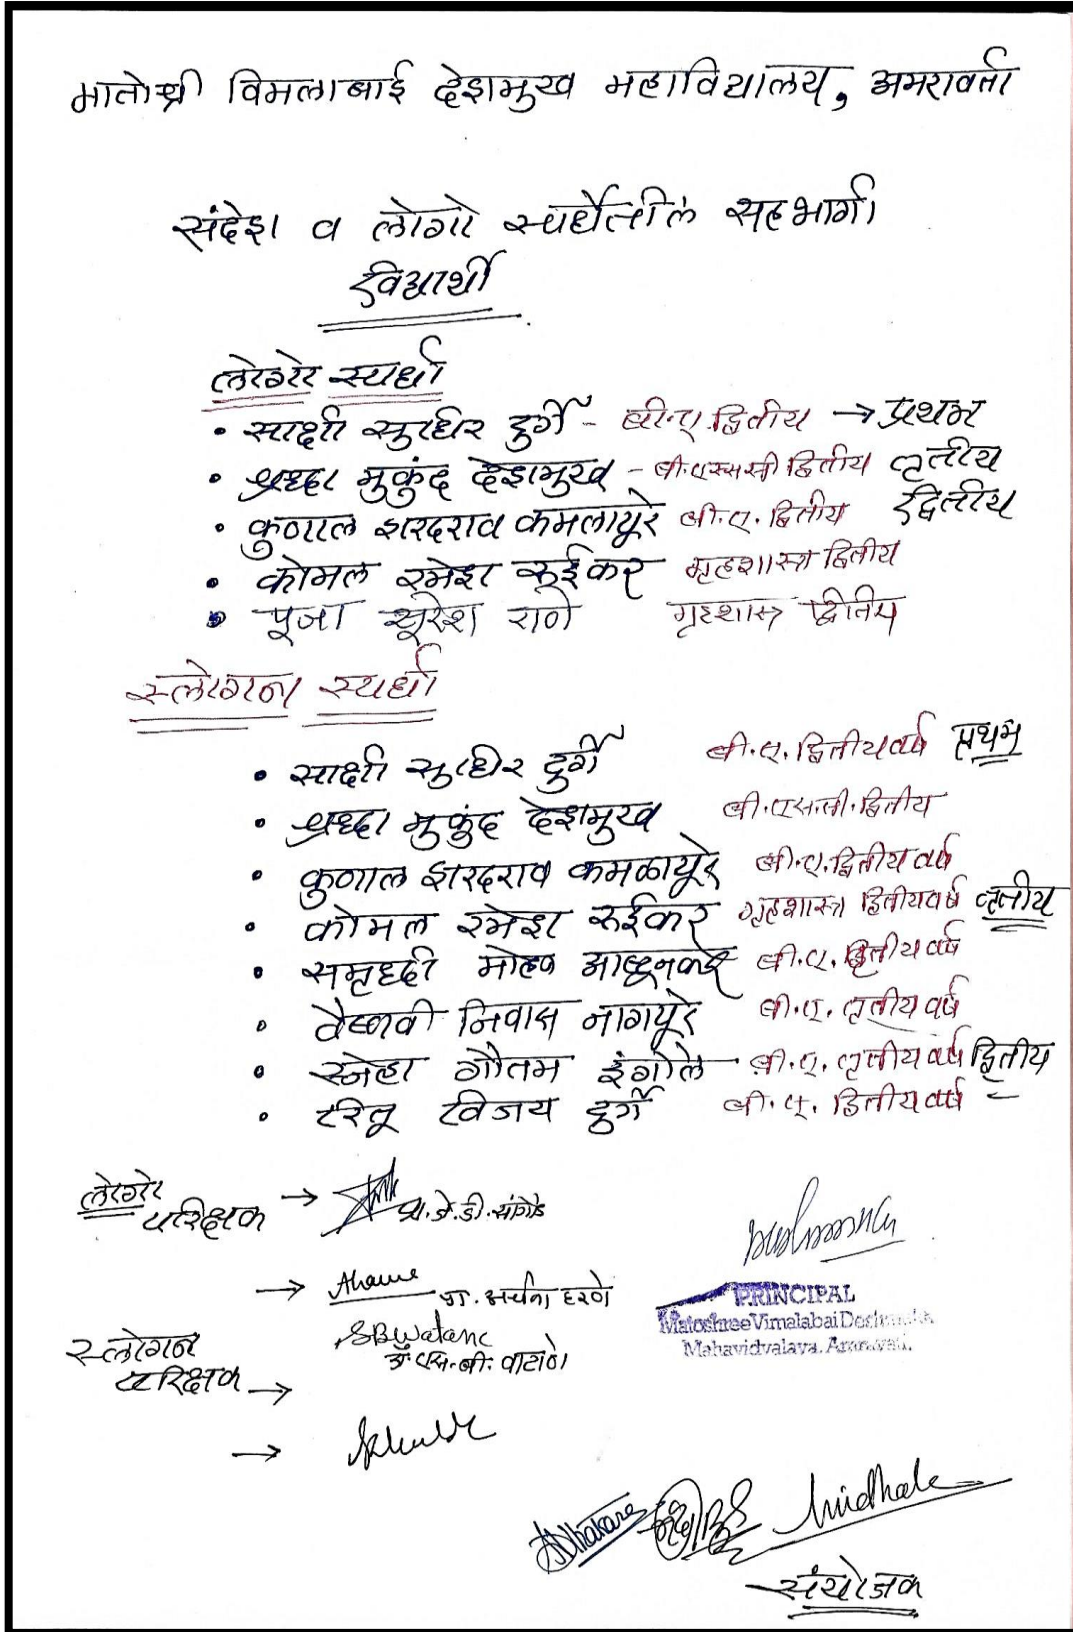 मातोश्री विमलाबाई देशमुख महाविद्यालय, अमरावती
संदेश व लोगो स्पर्धेतील सहभागी
विद्यार्थी
लोगो स्पर्धा
• साक्षी सुधिर दुर्गे - बी.ए. द्वितीय → प्रथम
• श्रध्दा मुकुंद देशमुख - बी.एस्ससी द्वितीय तृतीय
• कुणाल शरदराव कमलापूरे बी.ए. द्वितीय द्वितीय
• कोमल रमेश रुईकर गृहशास्त्र द्वितीय
• पूजा सूरेश राणे गृहशास्त्र द्वितीय
स्लोगन स्पर्धा
• साक्षी सुधिर दुर्गे बी.ए. द्वितीय वर्ष प्रथम
• श्रध्दा मुकुंद देशमुख बी.एस.सी. द्वितीय
• कुणाल शरदराव कमळापूरे बी.ए. द्वितीय वर्ष
• कोमल रमेश रुईकर गृहशास्त्र द्वितीय वर्ष तृतीय
• समृध्दी मोहन बी.ए. द्वितीय वर्ष
• वैष्णवी निवास नागपूरे बी.ए. तृतीय वर्ष
• स्नेहा गौतम इंगोले बी.ए. तृतीय वर्ष द्वितीय
• रितू विजय दुर्गे बी.ए. द्वितीय वर्ष
लोगो
परिक्षक → प्रा.जे.डी.
→ अर्चना हरणे
SBWatane
स्लोगन एस.बी. वाटाणे
परिक्षक →
→
PRINCIPAL
Matoshree Vimalabai Deshmukh
Mahavidyalaya, Amravati.
संयोजक